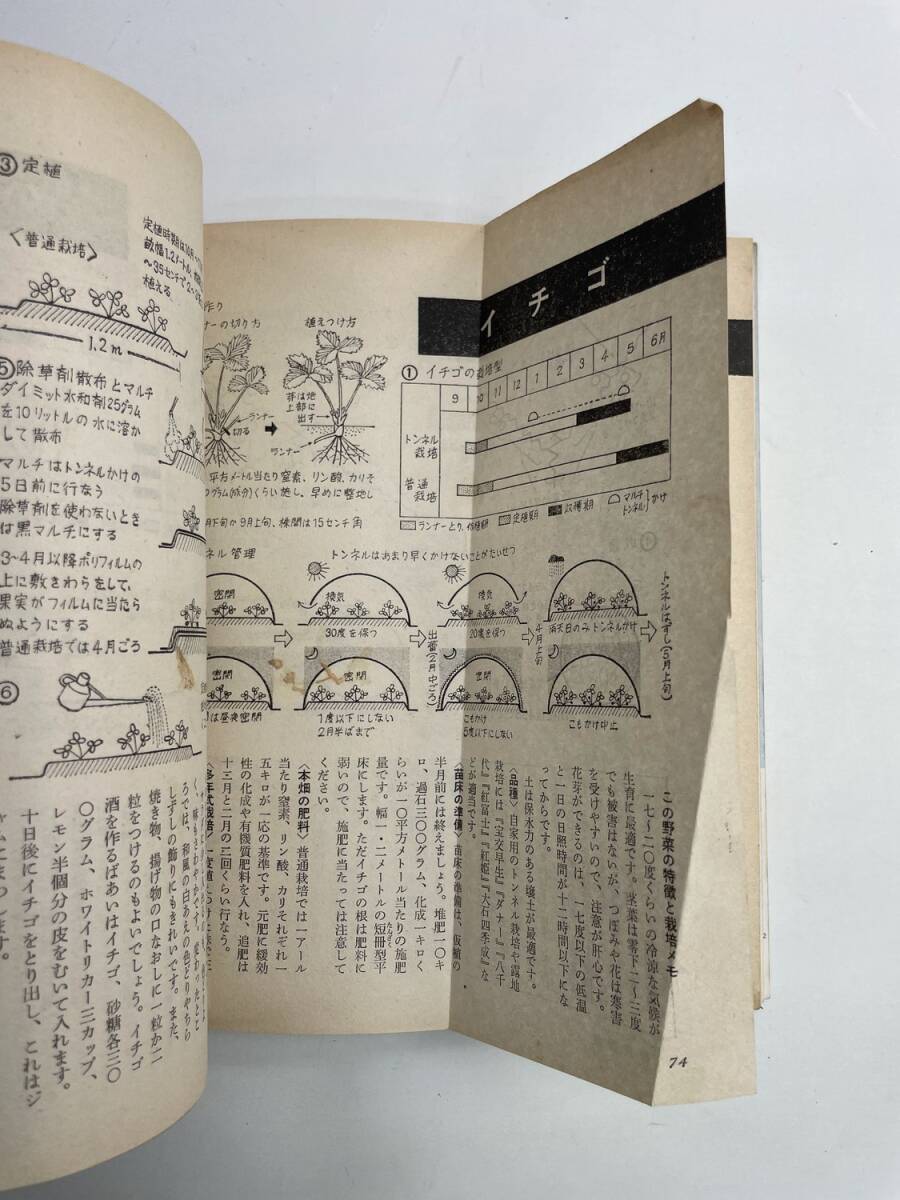 イチゴ
①イチゴの栽培型
9 10 11 12 1 2 3 4 5 6月
トンネル
栽培
普通
栽培
ランナーとり、仮植期
定植期
収穫期
マルチ
トンネル
かけ
ランナーの切り方
植えつけ方
芽は地
上部に
出す
ランナー
切る
ランナー
平方メートル当たり窒素、リン酸、カリそ
グラム(成分)くらい施し、早めに整地し
月下旬か9月上旬、株間は15センチ角
ネル管理
トンネルはあまり早くかけないことがたいせつ
密閉
換気
30度を保つ
出蕾(2月中ごろ)
換気
20度を保つ
4月上旬
雨天日のみトンネルかけ
トンネルはずし(5月上旬)
密閉
は昼夜密閉
密閉
1度以下にしない
2月半ばまで
密閉
こもかけ
5度以下にしない
密閉
こもかけ中止
この野菜の特徴と栽培メモ
一七〜二〇度くらいの冷涼な気候が
生育に最適です。茎葉は零下二〜三度
でも被害はないが、つぼみや花は寒害
を受けやすいので、注意が肝心です。
花芽ができるのは、一七度以下の低温
と一日の日照時間が十二時間以下にな
ってからです。
土は保水力のある壌土が最適です。
〈品種〉自家用のトンネル栽培や露地
栽培には『宝交早生』『ダナー』『八千
代』『紅富士』『紅姫』『大石四季成』な
どが適当です。
〈苗床の準備〉苗床の準備は、仮植の
半月前には終えましょう。堆肥一〇キ
ロ、過石三〇〇グラム、化成一キロく
らいが一〇平方メートル当たりの施肥
量です。幅一・二メートルの短冊型平
たんざく
床にします。ただイチゴの根は肥料に
弱いので、施肥に当たっては注意して
ください。
〈本畑の肥料〉普通栽培では一アール
当たり窒素、リン酸、カリそれぞれ一・
五キロが一応の基準です。元肥に緩効
性の化成や有機質肥料を入れ、追肥は
十三月と二月の二回くらい行なう。
74
③定植
〈普通栽培〉
定植時期は10月
畝幅1.2メートル
〜35センチで2〜
植える
1.2m
⑤除草剤散布とマルチ
ダイミット水和剤25グラム
を10リットルの水に溶か
して散布
マルチはトンネルかけの
5日前に行なう
除草剤を使わないとき
は黒マルチにする
3〜4月以降ポリフィルムの
上に敷きわらをして、
果実がフィルムに当たら
ぬようにする
普通栽培では4月ごろ
⑥
ろで、和風の白あえの色どりやちら
しずしの飾りにもきれいです。また、
焼き物、揚げ物の口なおしに一粒か二
粒をつけるのもよいでしょう。イチゴ
酒を作るばあいはイチゴ、砂糖各三〇
〇グラム、ホワイトリカー三カップ、
レモン半個分の皮をむいて入れます。
十日後にイチゴをとり出し、これはジ
ャムにまわします。